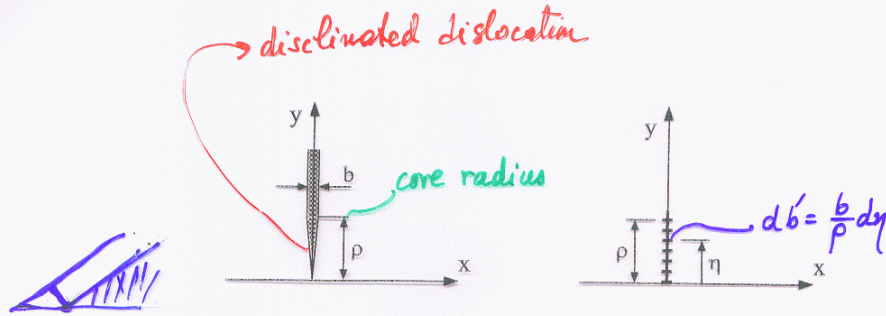 disclinated dislocation
y
b
core radius
ρ
x
y
db' = b/ρ dη
ρ
η
x